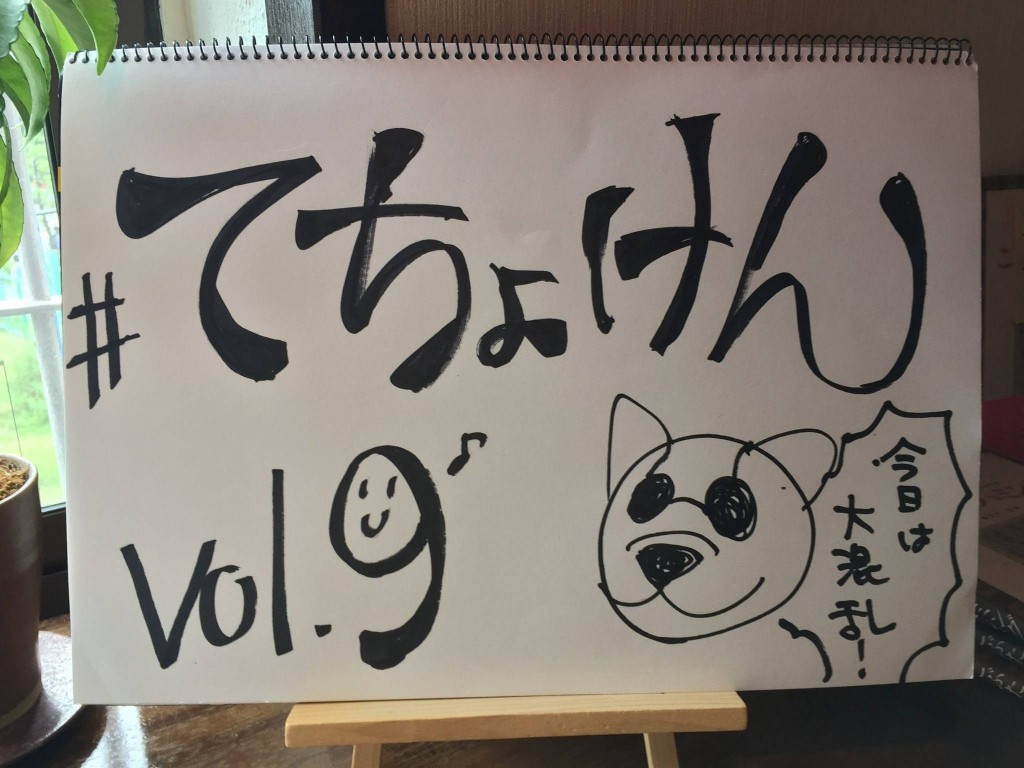 #てちょけん
vol.9
今日は
大混乱ー!